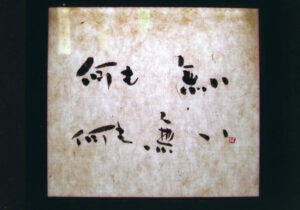 何も 無い
何も 無い